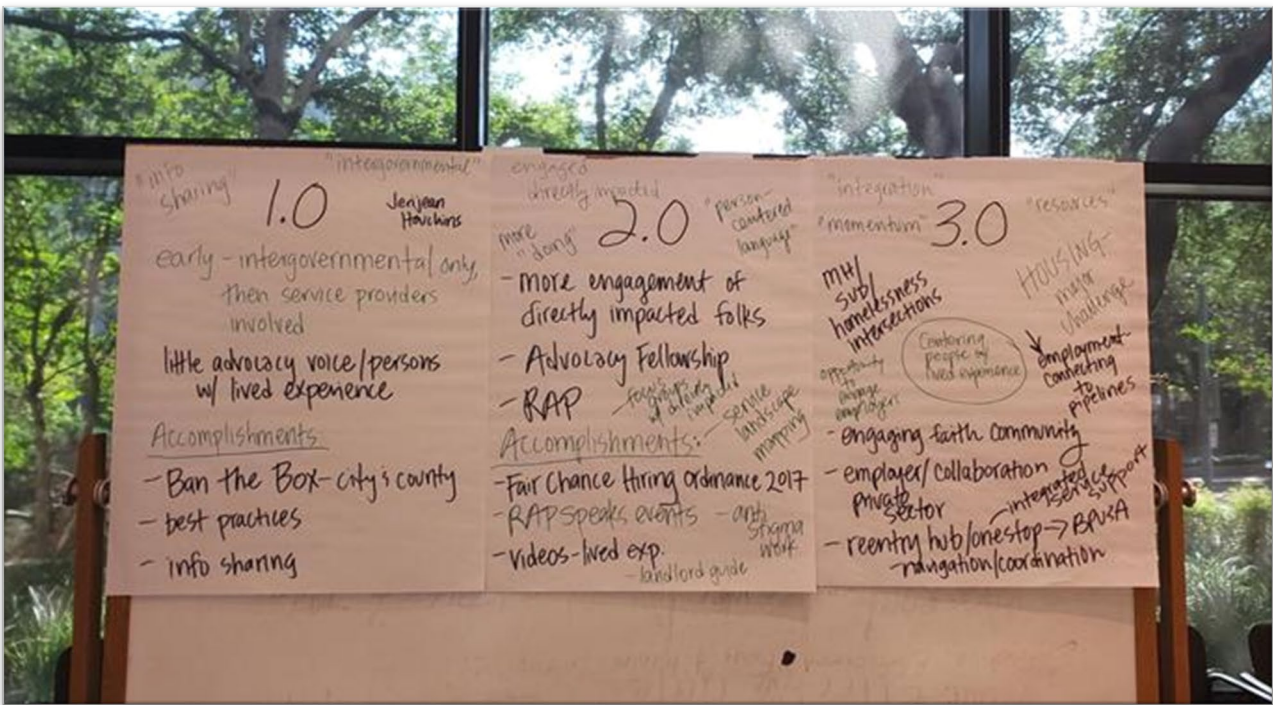 "info
sharing"
"intergovernmental"
1.0
Jerijean
Houchins
early - intergovernmental only,
then service providers
involved
little advocacy voice/persons
w/ lived experience
Accomplishments:
- Ban the Box - city & county
- best practices
- info sharing
engaged
directly impacted
more
"doing"
2.0
"person-
centered
language"
- more engagement of
directly impacted folks
- Advocacy Fellowship
- RAP
- focus groups
w/ directly
impacted
- service
landscape
mapping
Accomplishments:
- Fair Chance Hiring Ordinance 2017
- RAP Speaks events
- anti
stigma
work
- videos - lived exp.
- landlord guide
"integration"
"momentum"
3.0
"resources"
MH/
Sub/
homelessness
intersections
HOUSING-
major
challenge
Centering
people w/
lived experience
opportunity
to
engage
employers
employment
connecting
to
pipelines
- engaging faith community
- employer/collaboration
private
sector
- integrated
service
support
- reentry hub/onestop → 
- navigation/coordination